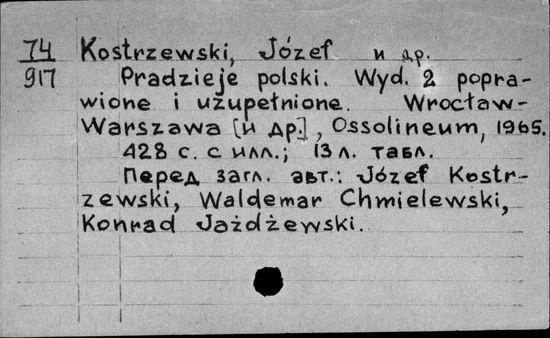 74
917
Kostrzewski, Józef и др.
Pradzieje polski. Wyd. 2 popra-
wione i uzupełnione. Wrocław-
Warszawa [и др.], Ossolineum, 1965.
428 с. с илл.; 13 л. табл.
Перед загл. авт.: Józef Kostr-
zewski, Waldemar Chmielewski,
Konrad Jażdżewski.